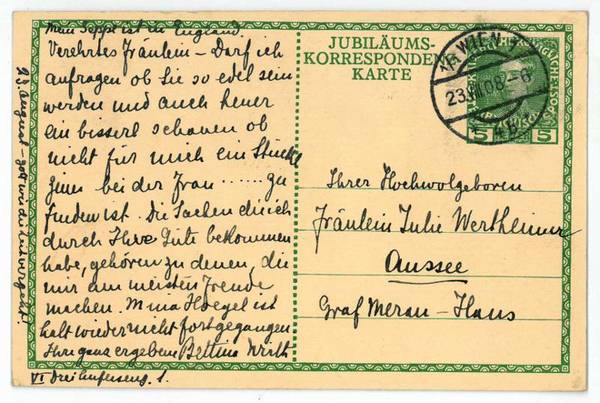 Mein Seppl ist in England.
Verehrtes Fräulein – Darf ich
anfragen ob Sie so edel sein
werden und auch heuer
ein bisserl schauen ob
nicht für mich ein Stückl
Zinn bei der Frau ...... zu
finden ist. Die Sachen die ich
durch Ihre Güte bekommen
habe, gehören zu denen, die
mir am meisten Freude
machen. Mina Hoegel ist
halt wieder nicht fortgegangen
Ihre ganz ergebene Bettina Wirth
VI Dreihufeiseng. 1.
23 August – gott wie die Zeit vergeht!
JUBILÄUMS-
KORRESPONDENZ-
KARTE
WIEN
23.VIII.08
5 5
Ihrer Hochwolgeboren
Fräulein Julie Wertheimer
Aussee
Graf Meran-Haus